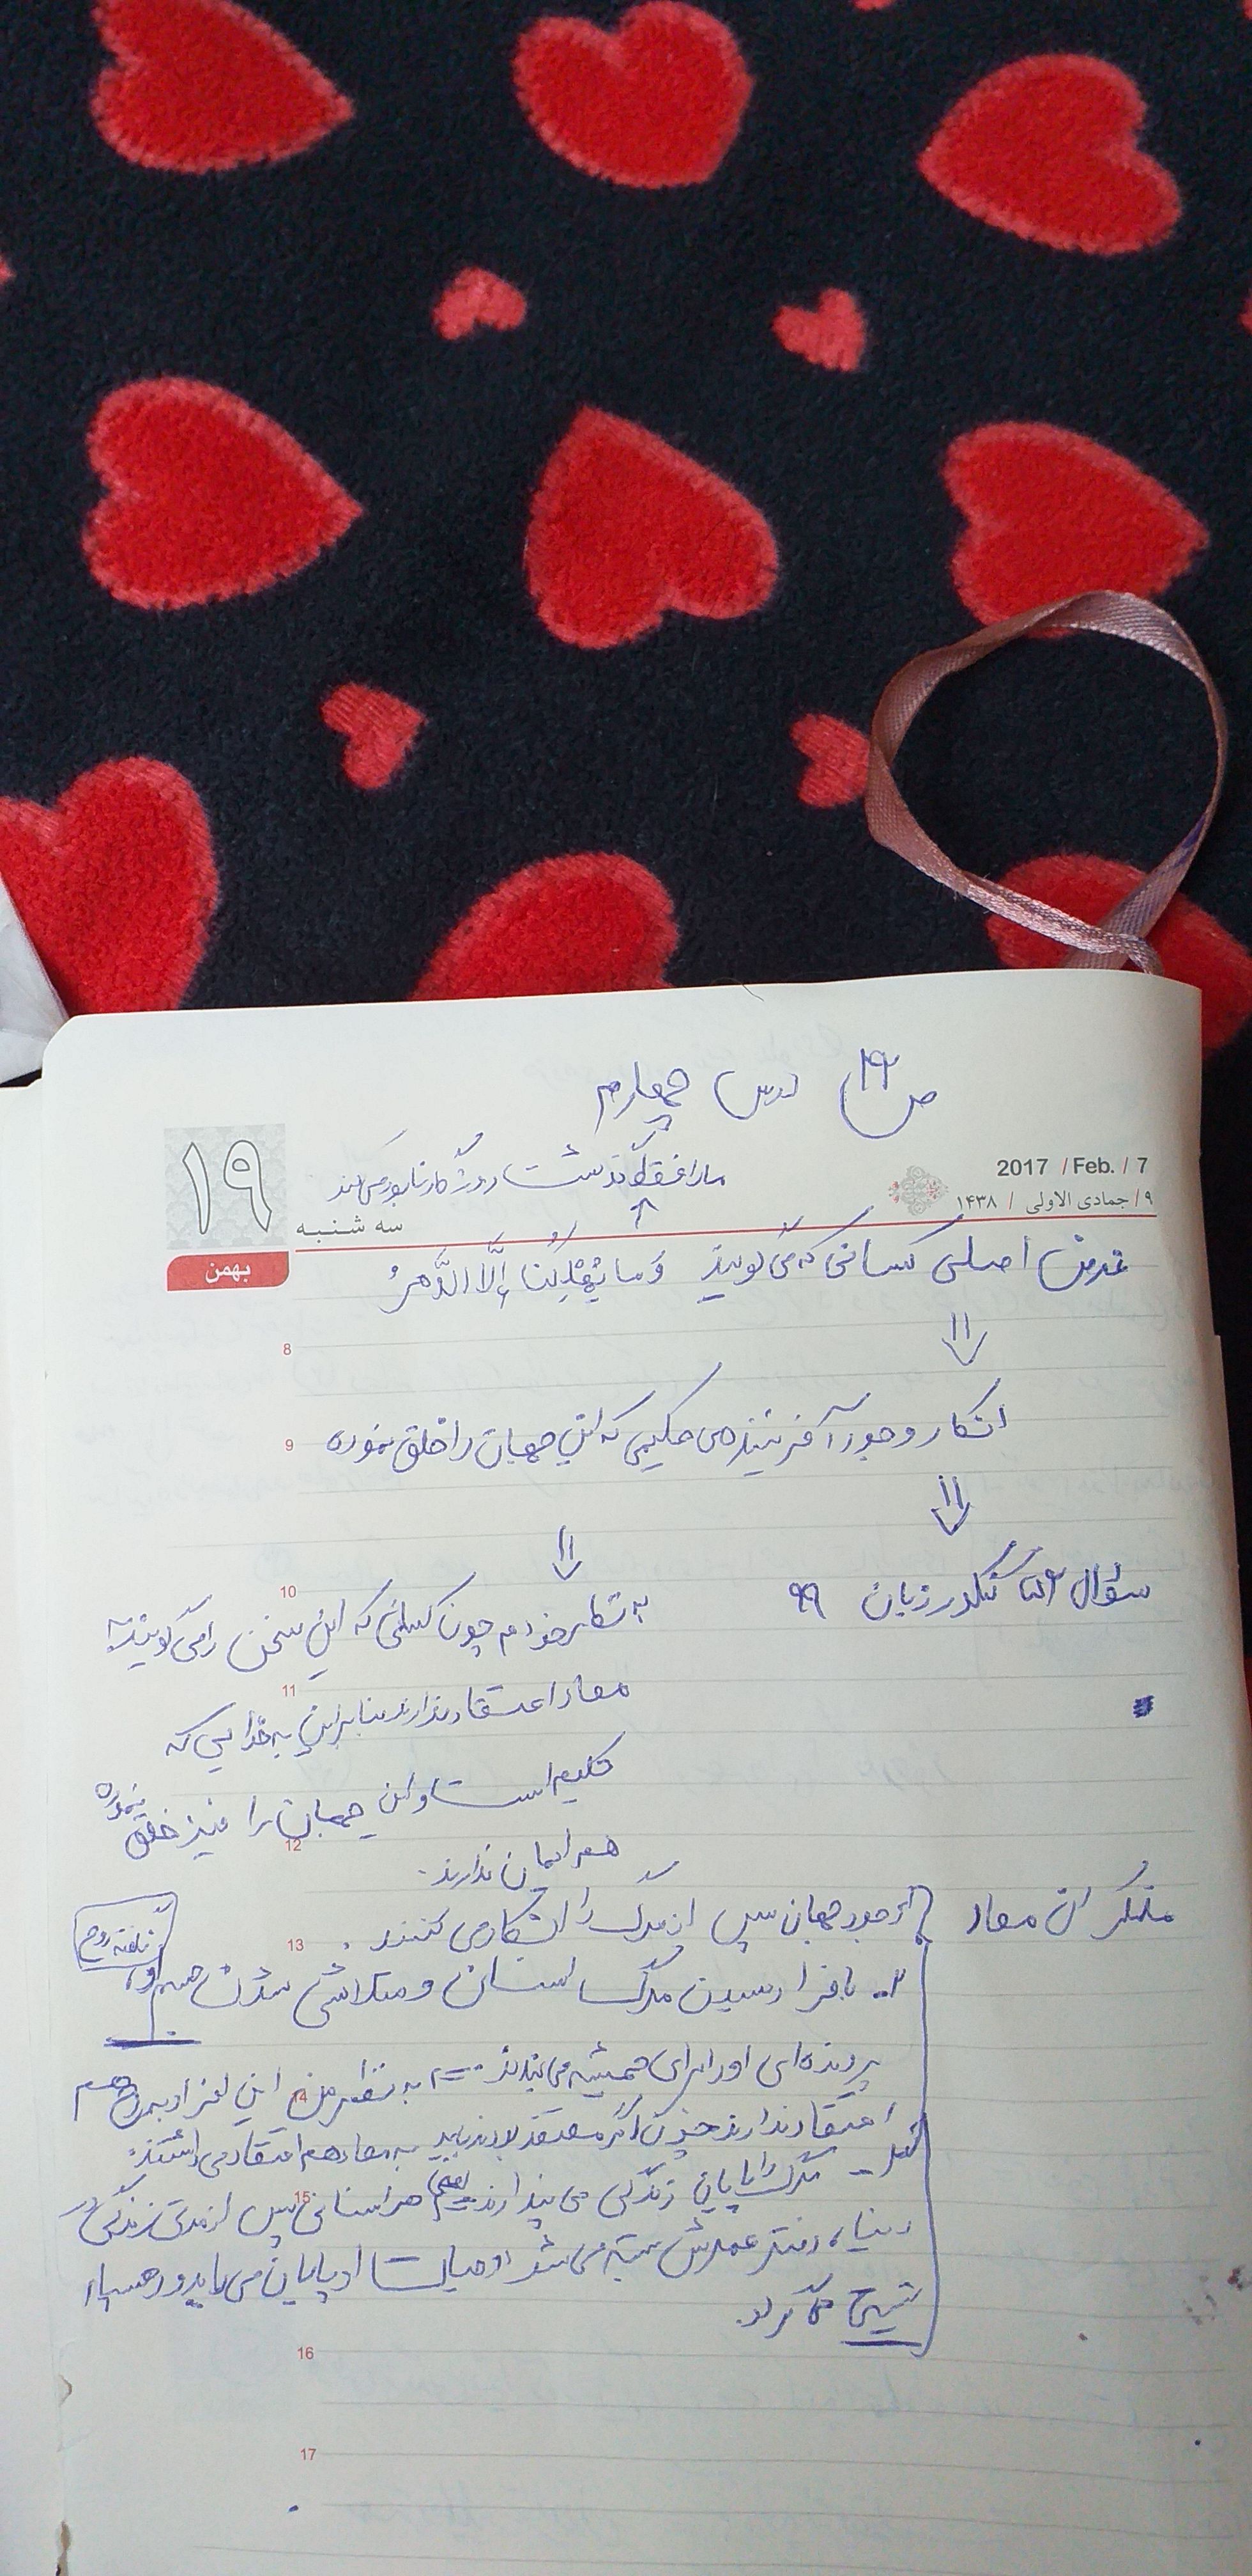 درس چهارم
2017 / Feb. / 7
۹/ جمادی الاولی / ۱۴۳۸
۱۹
سه شنبه
بهمن
ما را فقط گذشت روزگار نابود می‌کند
غرض اصلی کسانی که می گویند وَ ما یُهْلِکُنا إِلَّا الدَّهرُ
8
انکار وجود آفریننده‌ی حکیمی که این جهان را خلق نموده
9
سؤال کنکور زبان ۹۹
10
به نظر خودم چون کسانی که این سخن را می گویند به
11
معاد اعتقاد ندارند بنابراین به خدایی که
حکیم است و این جهان را نیز خلق نموده
12
هم ایمان ندارند.
منکران معاد
وجود جهان پس از مرگ را انکار می کنند.
13
۲- با فرا رسیدن مرگ انسان و متلاشی شدن جسم او،
پرونده‌ای او برای همیشه می بندند. به نظر من این افراد به روح هم
14
اعتقاد ندارند چون اگر معتقد بودند باید به معاد هم اعتقاد می داشتند.
مرگ را پایان زندگی می پندارند یعنی هر انسانی پس از مدتی زندگی در
15
دنیا، دفتر عمرش بسته می شود و حیات او پایان می یابد و رهسپار
می گردد.
16
17